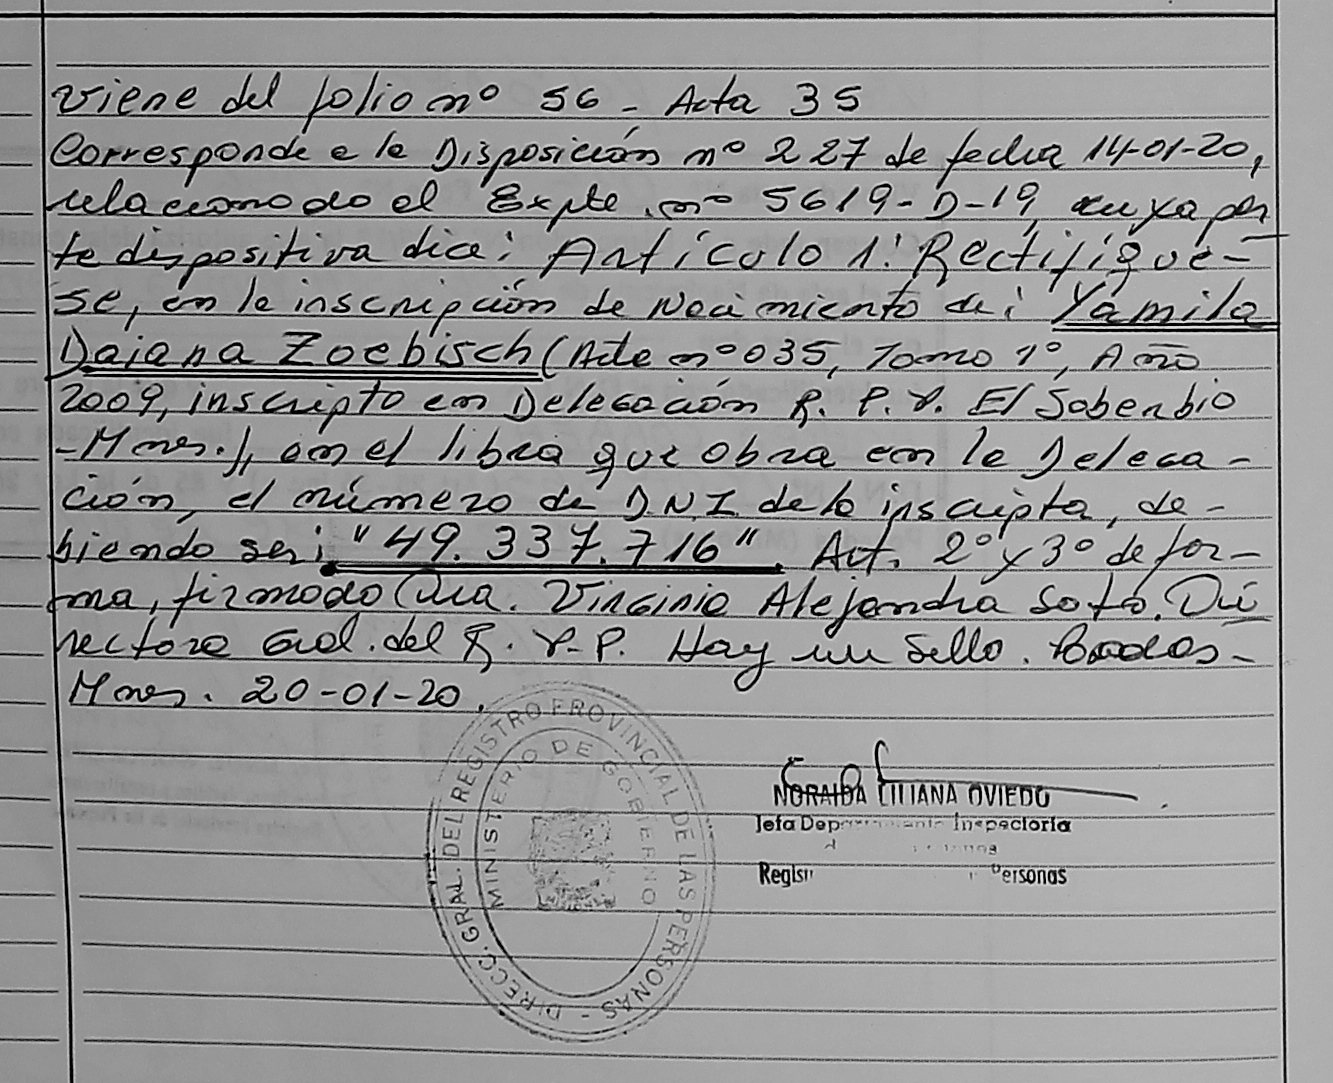 Viene del folio nº 56 - Acta 35
Corresponde a la Disposición nº 227 de fecha 14-01-20,
relacionado el Expte. nº 5619-D-19, cuya par
te dispositiva dice: Artículo 1: Rectifíque-
se, en la inscripción de Nacimiento de: Yamila
Daiana Zoebisch (Acta nº 035, Tomo 1º, Año
2009, inscripto en Delegación R. P. P. El Soberbio
-Mnes.), en el libro que obra en la Delega-
ción, el número de D.N.I. de la inscripta, de-
biendo ser: "49.337.716". Art. 2º y 3º de for-
ma, firmado Dra. Virginia Alejandra Soto. Di
rectora Gral. del R. P. P. Hay un Sello. Posadas-
Mnes. 20-01-20.
DIRECC. GRAL. DEL REGISTRO PROVINCIAL DE LAS PERSONAS -
MINISTERIO DE GOBIERNO
NORAIDA LILIANA OVIEDO
Jefa Departamento Inspectoría
Personas